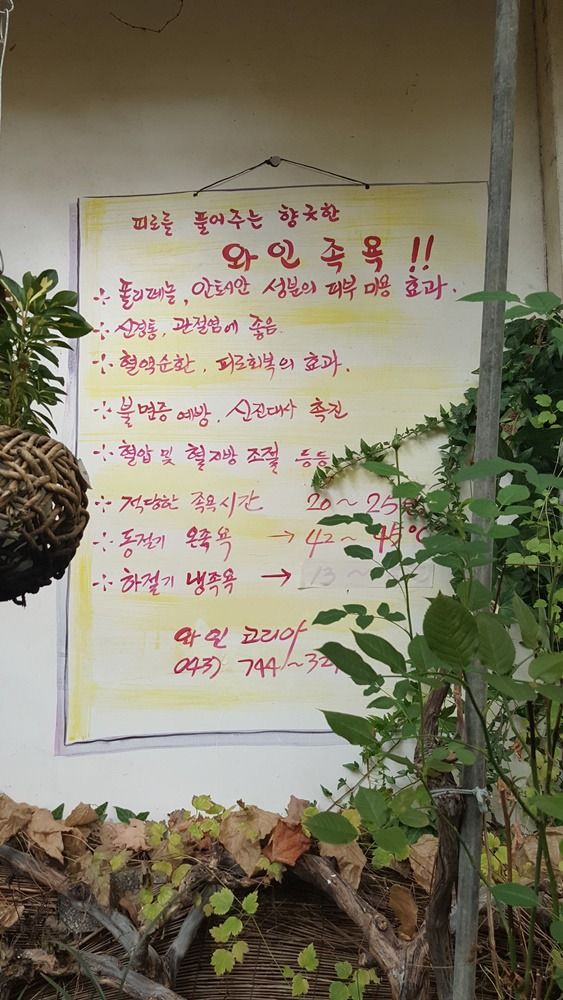 피로를 풀어주는 향긋한
와인족욕!!
폴리페놀, 안토시안 성분의 피부 미용 효과.
신경통, 관절염에 좋음.
혈액순환, 피로회복의 효과.
불면증 예방, 신진대사 촉진
혈압 및 혈지방 조절 등등
적당한 족욕시간 20~25
동절기 온족욕 → 42~45℃
하절기 냉족욕 → 13~
와인 코리아
043) 744~32